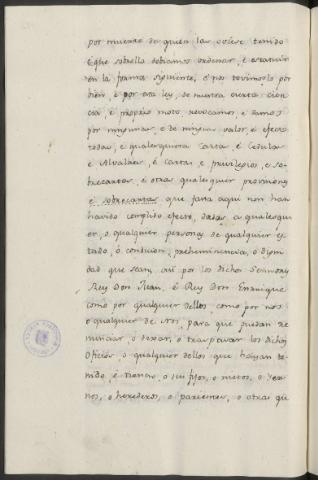 por muerte de quien las oviese tenido
E que sobrello debiamos ordenar, e estatuir
en la forma siguiente, e nos tovimoslo por
bien, e por esta ley, de nuestra cierta cien
cia, e propio moto revocamos, e damos
por ningunas, e de ningun valor, e efecto
todas, e qualesquiera Cartas, e Cedulas
e Alvalaes, e Cartas, e privilegios, e so-
brecartas, e otras qualesquier provisiones
e sobrecartas que fasta aqui non han
havido complido efecto, dadas a qualesqui
er, o qualquier personas de qualquier es-
tado, o condicion, preheminencia, o digni
dad que sean, asi por los dichos Señores
Rey Don Juan, e Rey Don Enrrique
como por qualquier dellos, como por nos
o qualquier de Nos, para que puedan re
nunciar, o dexar, o traspasar los dichos
Oficios, o qualquier dellos que hayan te-
nido, e tienen, o sus fijos, o nietos, o yer-
nos, o herederos, o parientes, o otras qu